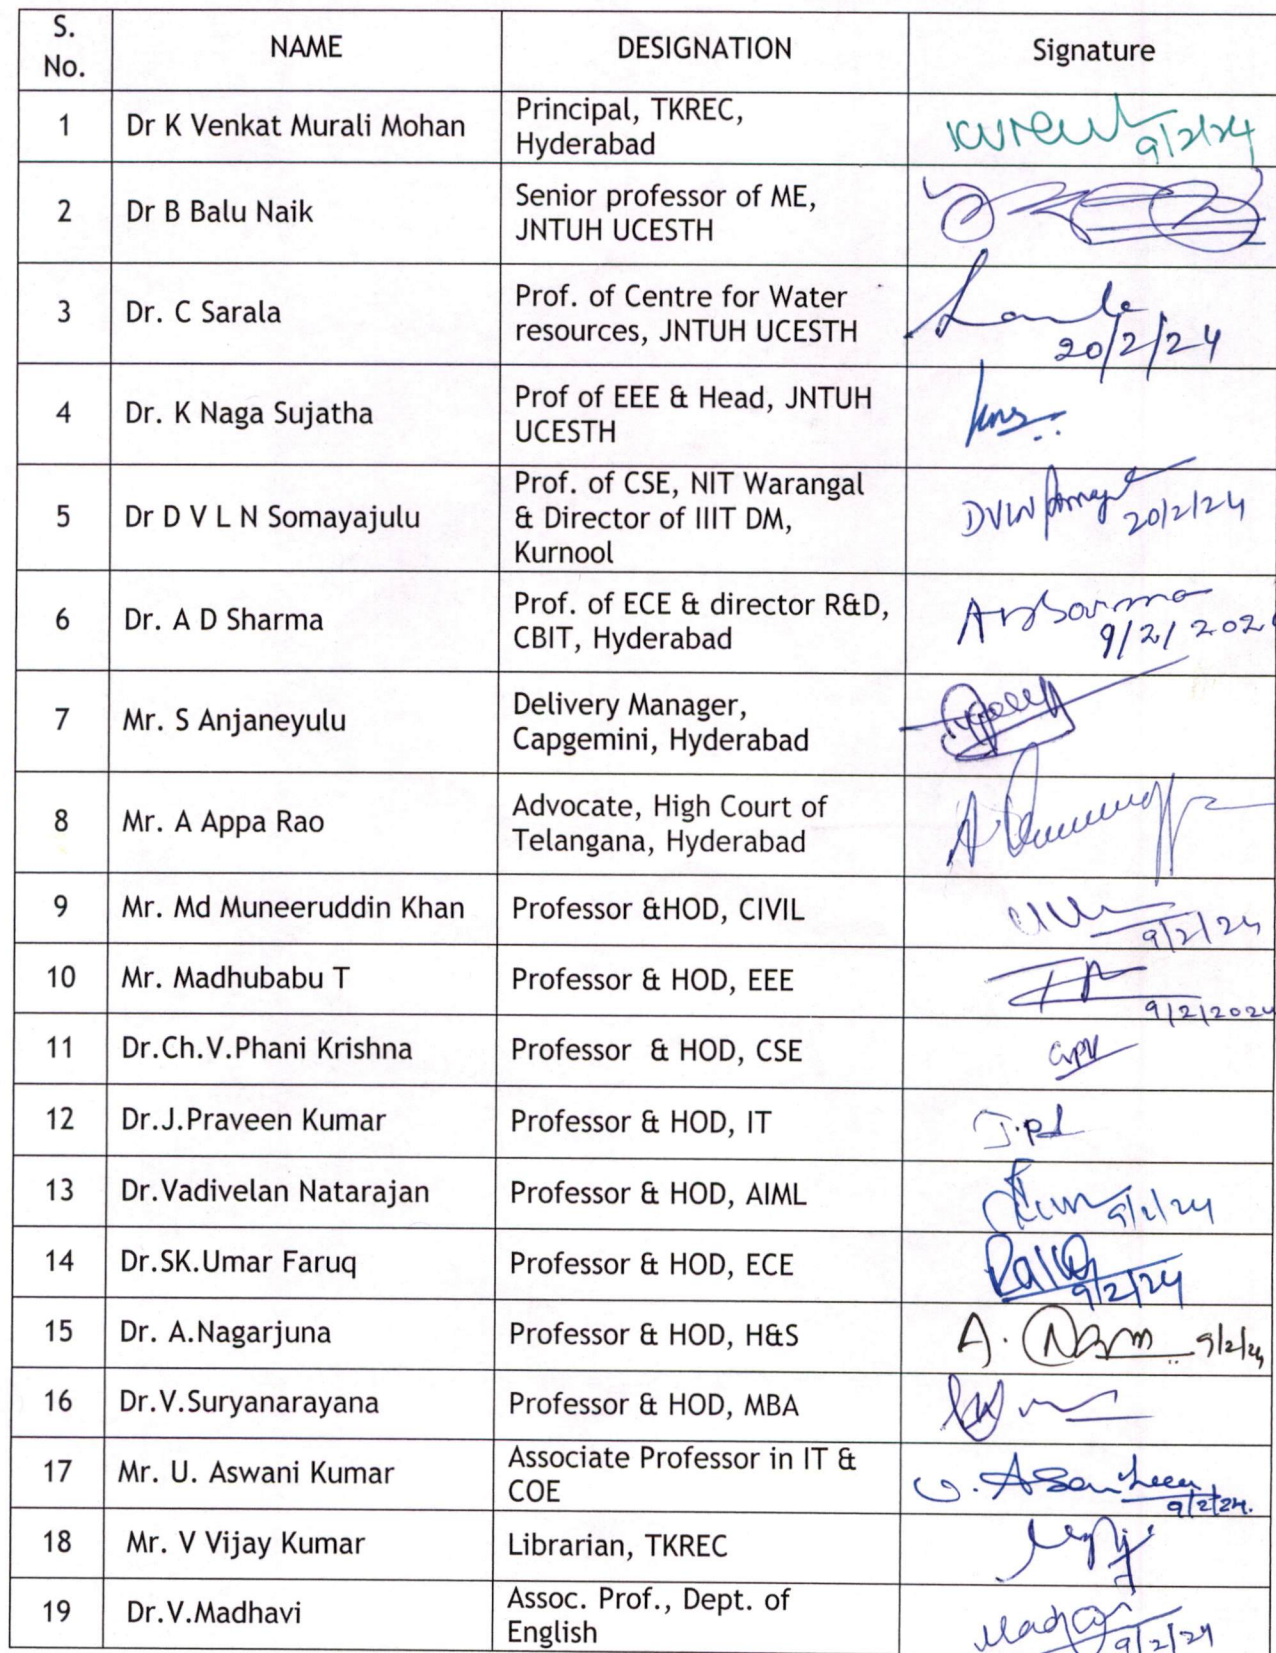 S.
No.
NAME
DESIGNATION
Signature
1
Dr K Venkat Murali Mohan
Principal, TKREC,
Hyderabad
9/2/24
2
Dr B Balu Naik
Senior professor of ME,
JNTUH UCESTH
3
Dr. C Sarala
Prof. of Centre for Water
resources, JNTUH UCESTH
20/2/24
4
Dr. K Naga Sujatha
Prof of EEE & Head, JNTUH
UCESTH
kns
5
Dr D V L N Somayajulu
Prof. of CSE, NIT Warangal
& Director of IIIT DM,
Kurnool
DVLN
20/2/24
6
Dr. A D Sharma
Prof. of ECE & director R&D,
CBIT, Hyderabad
AD Sarma
9/2/2024
7
Mr. S Anjaneyulu
Delivery Manager,
Capgemini, Hyderabad
8
Mr. A Appa Rao
Advocate, High Court of
Telangana, Hyderabad
9
Mr. Md Muneeruddin Khan
Professor &HOD, CIVIL
9/2/24
10
Mr. Madhubabu T
Professor & HOD, EEE
9/2/2024
11
Dr.Ch.V.Phani Krishna
Professor & HOD, CSE
12
Dr.J.Praveen Kumar
Professor & HOD, IT
13
Dr.Vadivelan Natarajan
Professor & HOD, AIML
9/2/24
14
Dr.SK.Umar Faruq
Professor & HOD, ECE
9/2/24
15
Dr. A.Nagarjuna
Professor & HOD, H&S
A.
9/2/24
16
Dr.V.Suryanarayana
Professor & HOD, MBA
17
Mr. U. Aswani Kumar
Associate Professor in IT &
COE
9/2/24.
18
Mr. V Vijay Kumar
Librarian, TKREC
19
Dr.V.Madhavi
Assoc. Prof., Dept. of
English
Madhavi
9/2/24